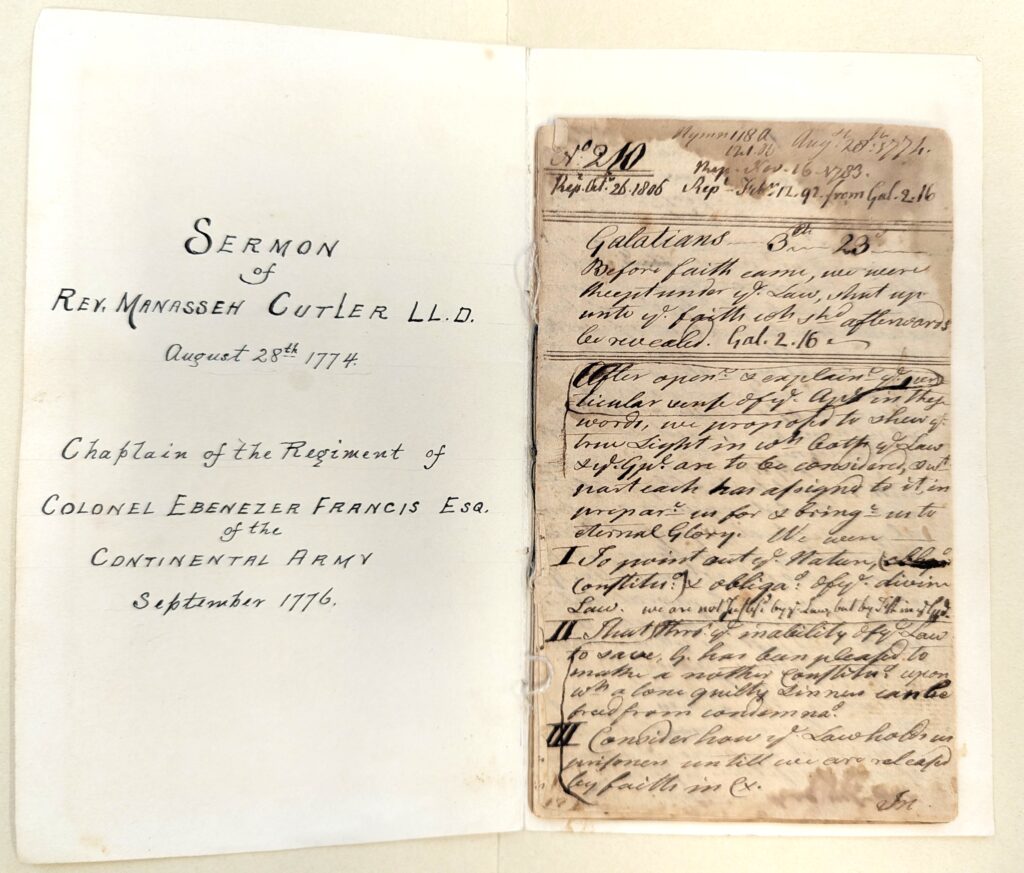 SERMON
of
REV. MANASSEH CUTLER LL.D.
August 28th 1774.
Chaplain of the Regiment of
COLONEL EBENEZER FRANCIS ESQ.
of the
CONTINENTAL ARMY
September 1776.
Hymn 118 Augst 28th 1774.
No 210
Rep. Nov. 16 1783.
Repd Octr 26 1806 Repd Febr 12. 92. from Gal. 2. 16
Galatians 3d 23
Before faith came, we were
kept under ye Law, shut up
unto ye faith wh shd afterwards
be revealed. Gal. 2. 16
After openg & explaing ye par
ticular sense of ye Apl in these
words, we proposed to shew ye
true Light in wh both ye Law
& ye Gpl are to be considered, & wt
part each has assigned to it, in
preparg us for & bringg us to
eternal Glory. We were
I To point out ye Nature,
Constitun & obligan of ye divine
Law. we are not by ye Law, but by
II That thro' ye inability of ye Law
to save, G. has been pleased to
make a nother Constitun upon
wh alone guilty Sinners can be
freed from condemnan.
III Consider how ye Law holds us
prisoners untill we are released
by faith in X.
In